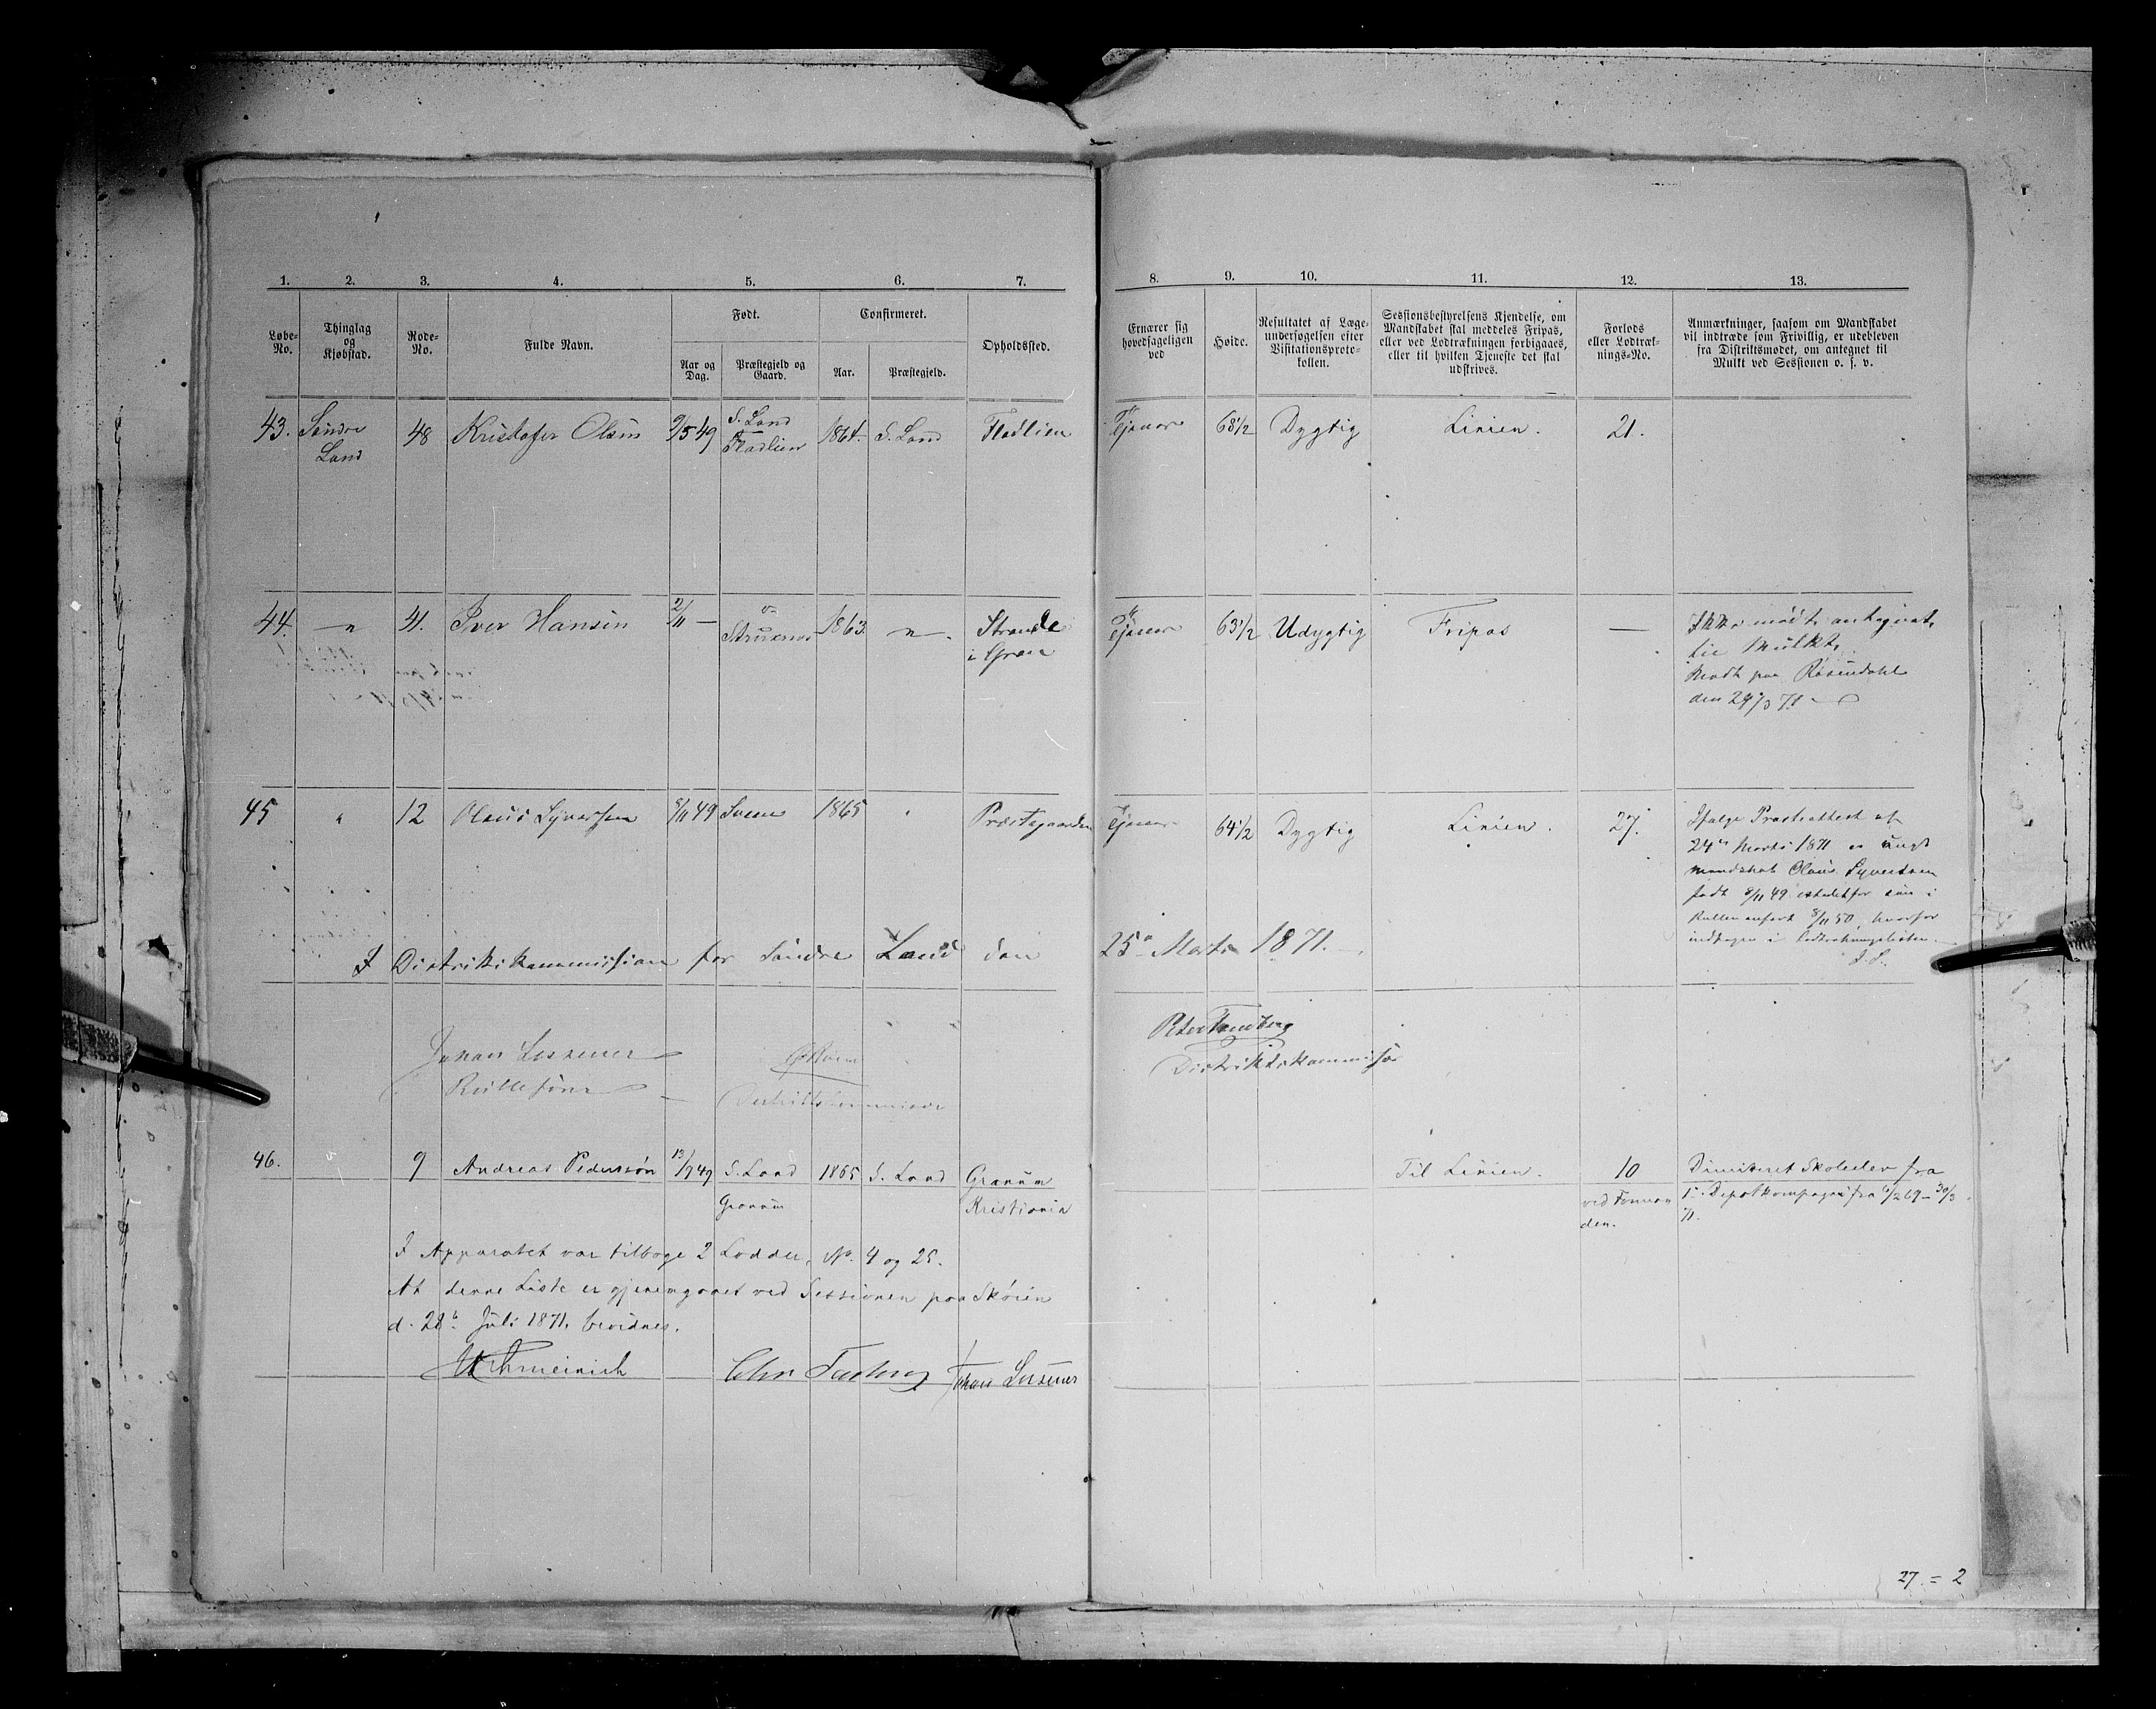 1. 2. 3. 4. 5. 6. 7. 8. 9. 10. 11. 12. 13.
Løbe-No.
Thinglag og Kjøbstad.
Rode-No.
Fulde Navn.
Født.
Aar og Dag.
Præstegjeld og Gaard.
Confirmeret.
Aar.
Præstegjeld.
Opholdssted.
Ernærer sig hovedsageligen ved
Høide.
Resultatet af Læge-undersøgelsen efter Visitationsproto-kollen.
Sessionsbestyrelsens Kjendelse, om Mandskabet skal meddeles Fripas, eller ved Lodtrækningen forbigaaes, eller til hvilken Tjeneste det skal udskrives.
Forlods eller Lodtræk-nings-No.
Anmærkninger, saasom om Mandskabet vil indtræde som Frivillig, er udebleven fra Distriktsmødet, om antegnet til Mulkt ved Sessionen o. s. v.
43. Søndre Land 48 Kristofer Olsen 9/5 49 S. Land Fladlien 1864 S. Land Fladlien Tjener 63 1/2 Dygtig Linien. 21.
44. — " 41. Iver Hansen 2/11 — 1863 — " — Strande i Gran Tjener 63 1/2 Udygtig Fripas —
Ikke mødt, antegnet
til Mulkt,
Mødt paa Rosendahl
den 29/3 71
45 " 12 Olaus Syversen 8/11 49 1865 " Præstegaarden Tjener 64 1/2 Dygtig Linien. 27.
Ifølge Præsteattest af
24de Marts 1871 er ungt
Mandskab Olaus Syversen
født 8/11 49 istedetfor som i
Rullen anført 8/11 50, hvorfor
indtagen i Lodtrækningslisten.
J. L.
I Distriktskommission for Søndre Land den 25de Marts 1871.
Johan Lessener
Rullefører
Distriktskommissær
Peter
Distriktskommissær
46. 9 Andreas Pedersøn 13/7 49 S. Land 1865 S. Land Granum Til Linien. 10 Dimiteret Skoleelev fra
Granum Kristiania ved Formanden. 1ste Depotkompagni fra 6/2 69 – 30/3 71.
I Apparatet var tilbage 2 Lodder, No. 4 og 25.
At denne Liste er gjennemgaaet ved Sessionen paa Skøien
d. 28de Juli 1871, bevidnes.
Chr Johan Lessener
27. = 2